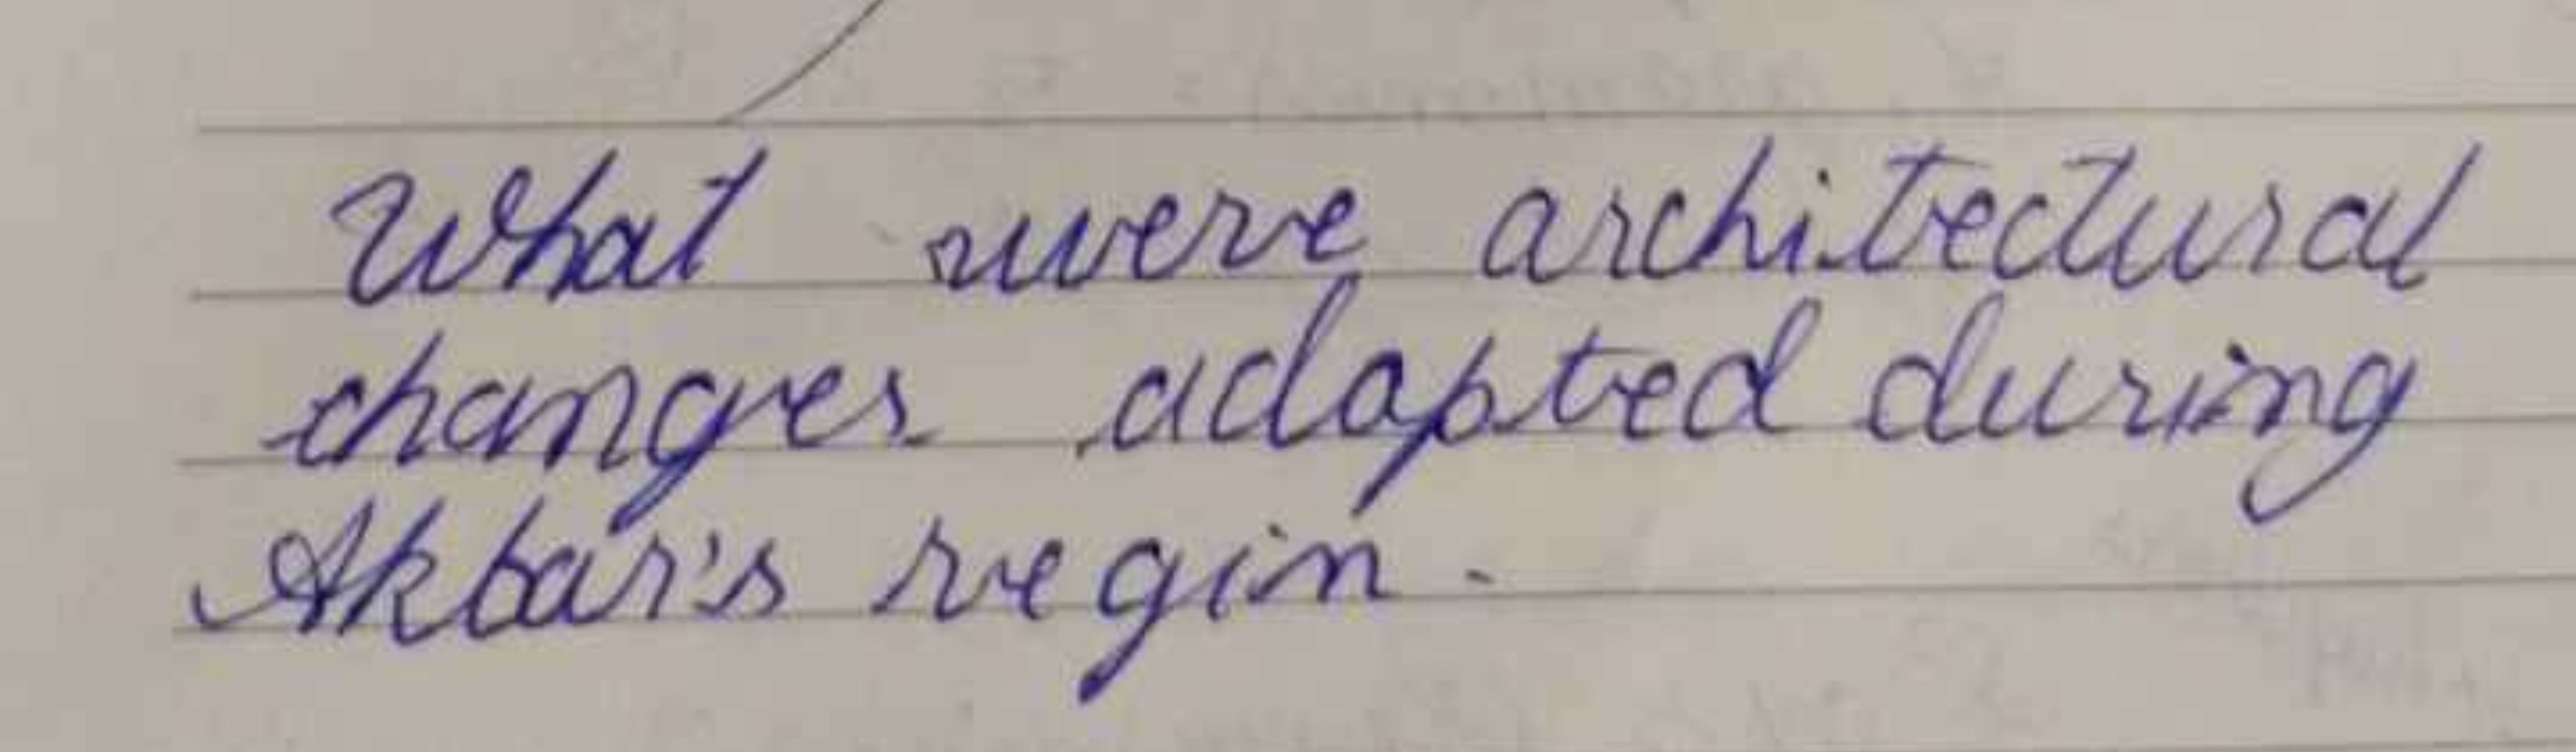 What were architectural
changes adapted during
Akbar's regin.